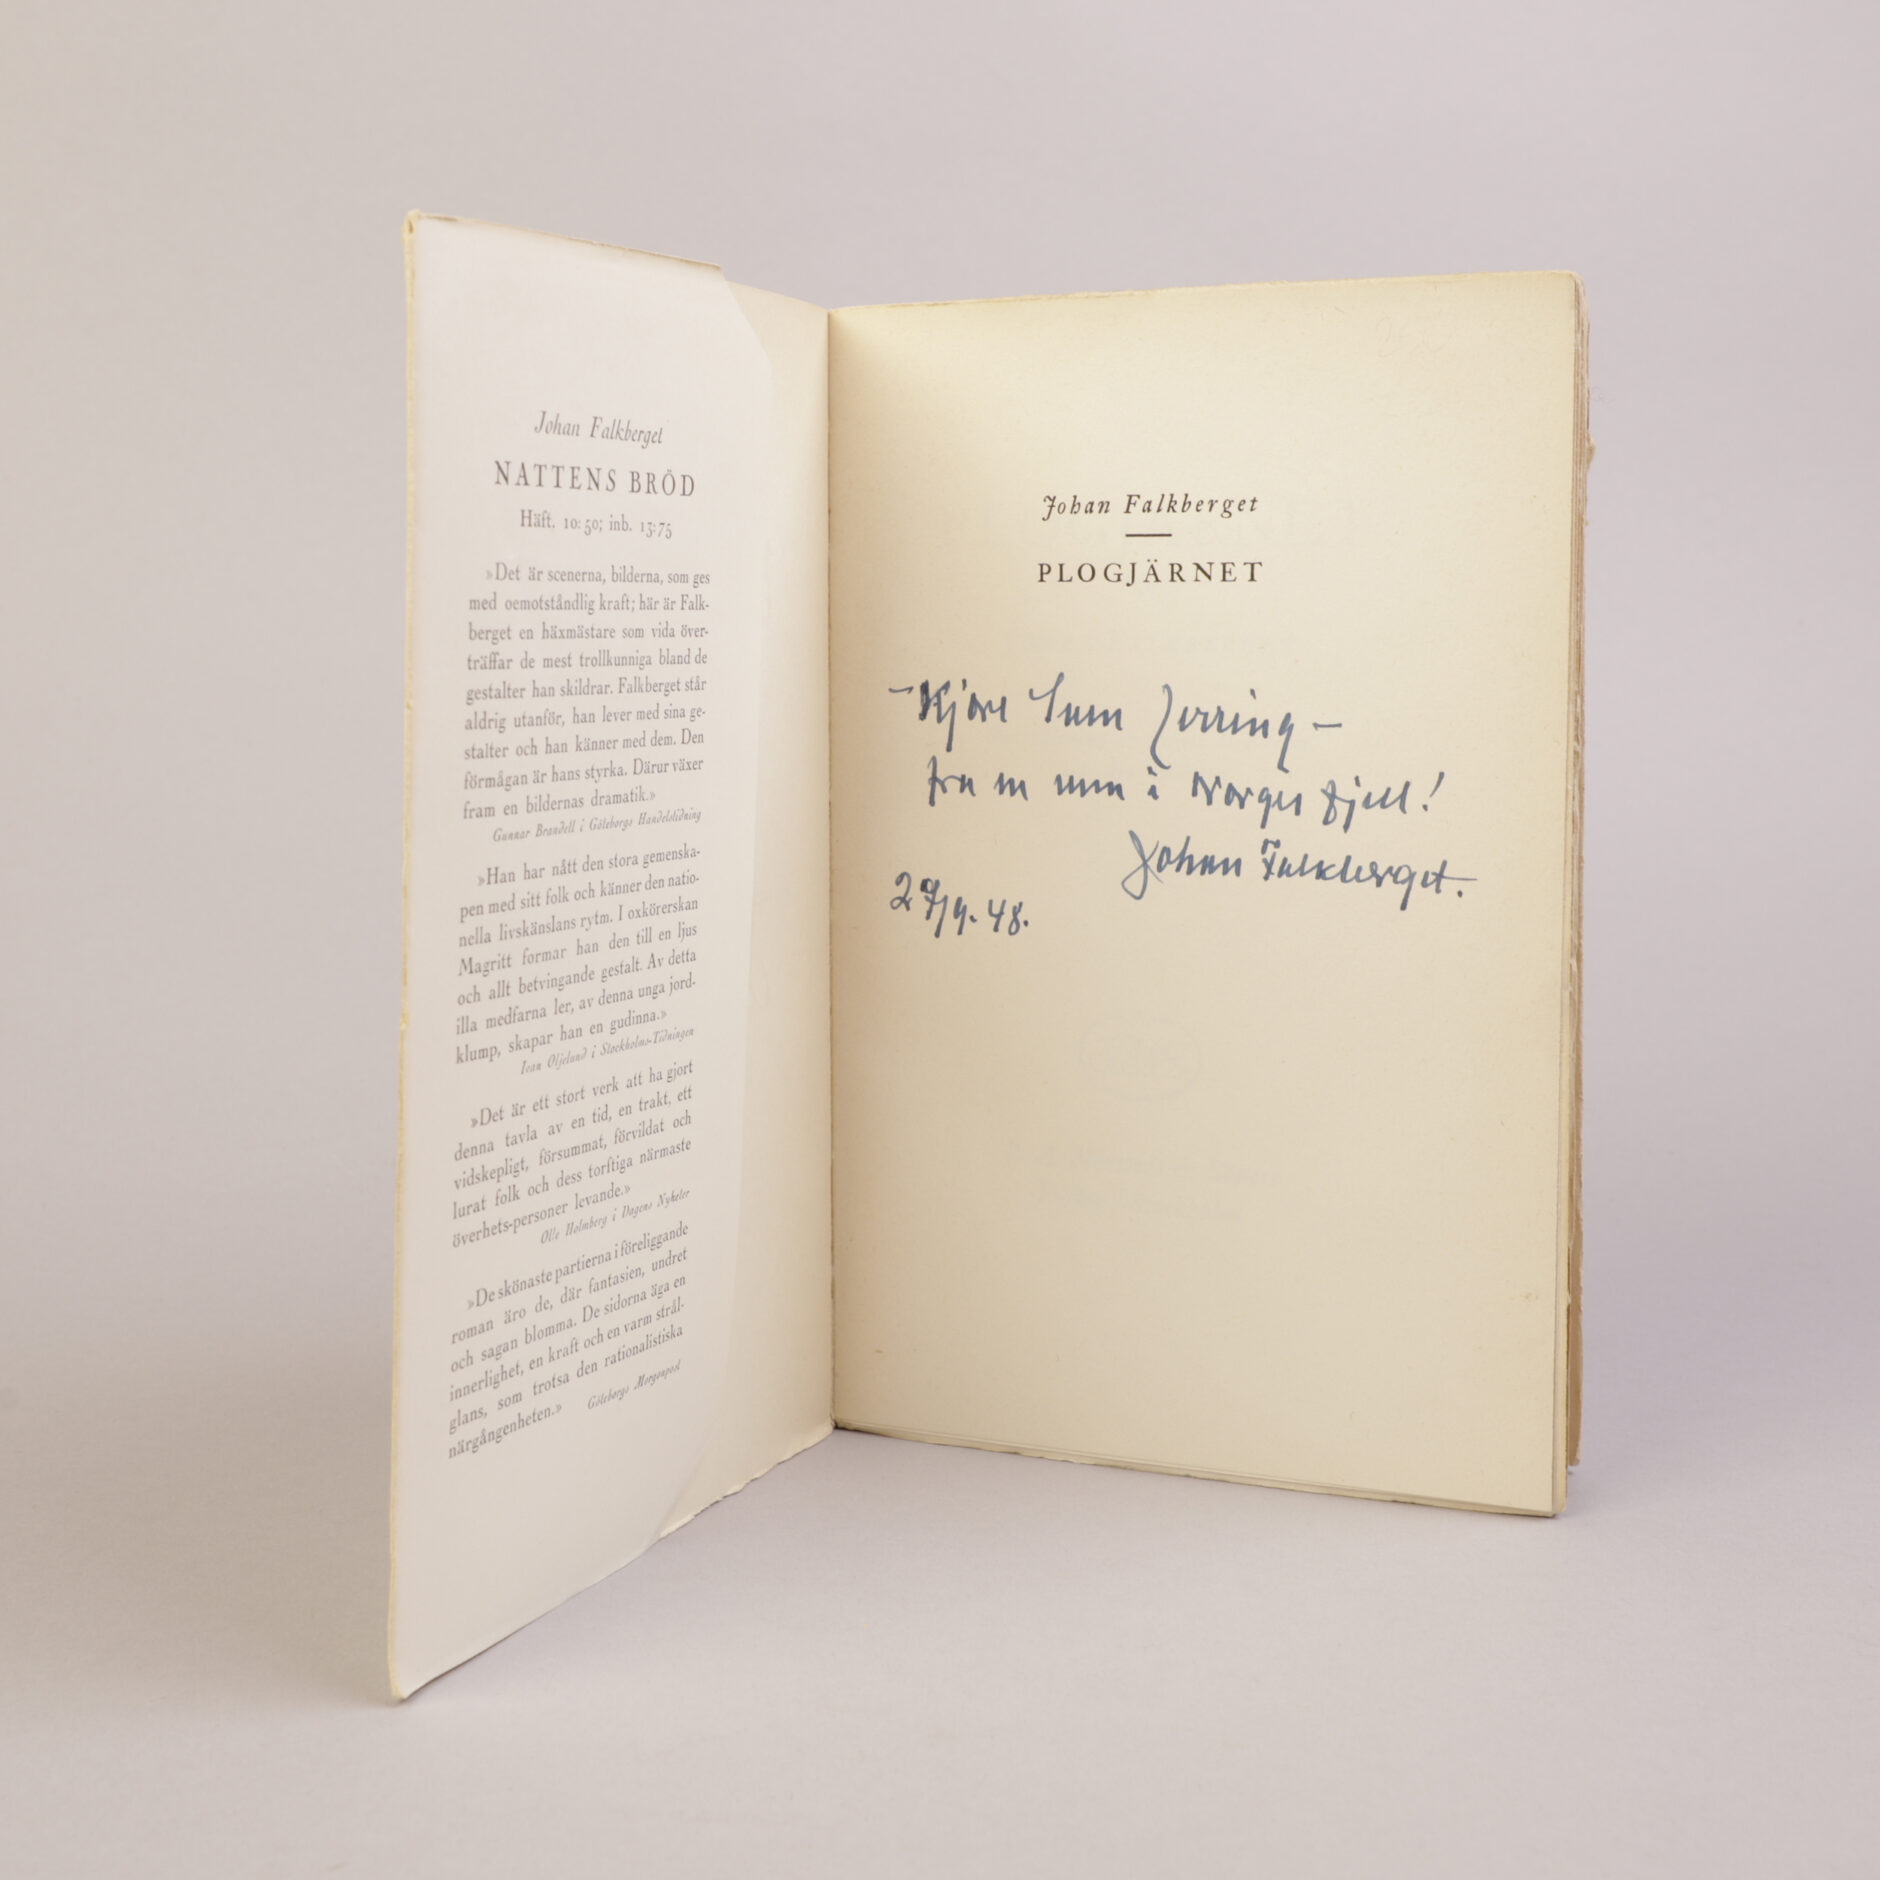 Johan Falkberget
NATTENS BRÖD
Häft. 10:50; inb. 13:75
»Det är scenerna, bilderna, som ges
med oemotståndlig kraft; här är Falk-
berget en häxmästare som vida över-
träffar de mest trollkunniga bland de
gestalter han skildrar. Falkberget står
aldrig utanför, han lever med sina ge-
stalter och han känner med dem. Den
förmågan är hans styrka. Därur växer
fram en bildernas dramatik.»
Gunnar Brandell i Göteborgs Handelstidning
»Han har nått den stora gemenska-
pen med sitt folk och känner den natio-
nella livskänslans rytm. I oxkörerskan
Magritt formar han den till en ljus
och allt betvingande gestalt. Av detta
illa medfarna ler, av denna unga jord-
klump, skapar han en gudinna.»
Ivan Oljelund i Stockholms-Tidningen
»Det är ett stort verk att ha gjort
denna tavla av en tid, en trakt, ett
vidskepligt, försummat, förvildat och
lurat folk och dess torftiga närmaste
överhets-personer levande.»
Olle Holmberg i Dagens Nyheter
»De skönaste partierna i föreliggande
roman äro de, där fantasien, undret
och sagan blomma. De sidorna äga en
innerlighet, en kraft och en varm strål-
glans, som trotsa den rationalistiska
närgångenheten.»
Göteborgs Morgonpost
Johan Falkberget
PLOGJÄRNET
– Kjære Sven Jerring –
fra en venn i Norges fjell!
Johan Falkberget.
29/9.48.